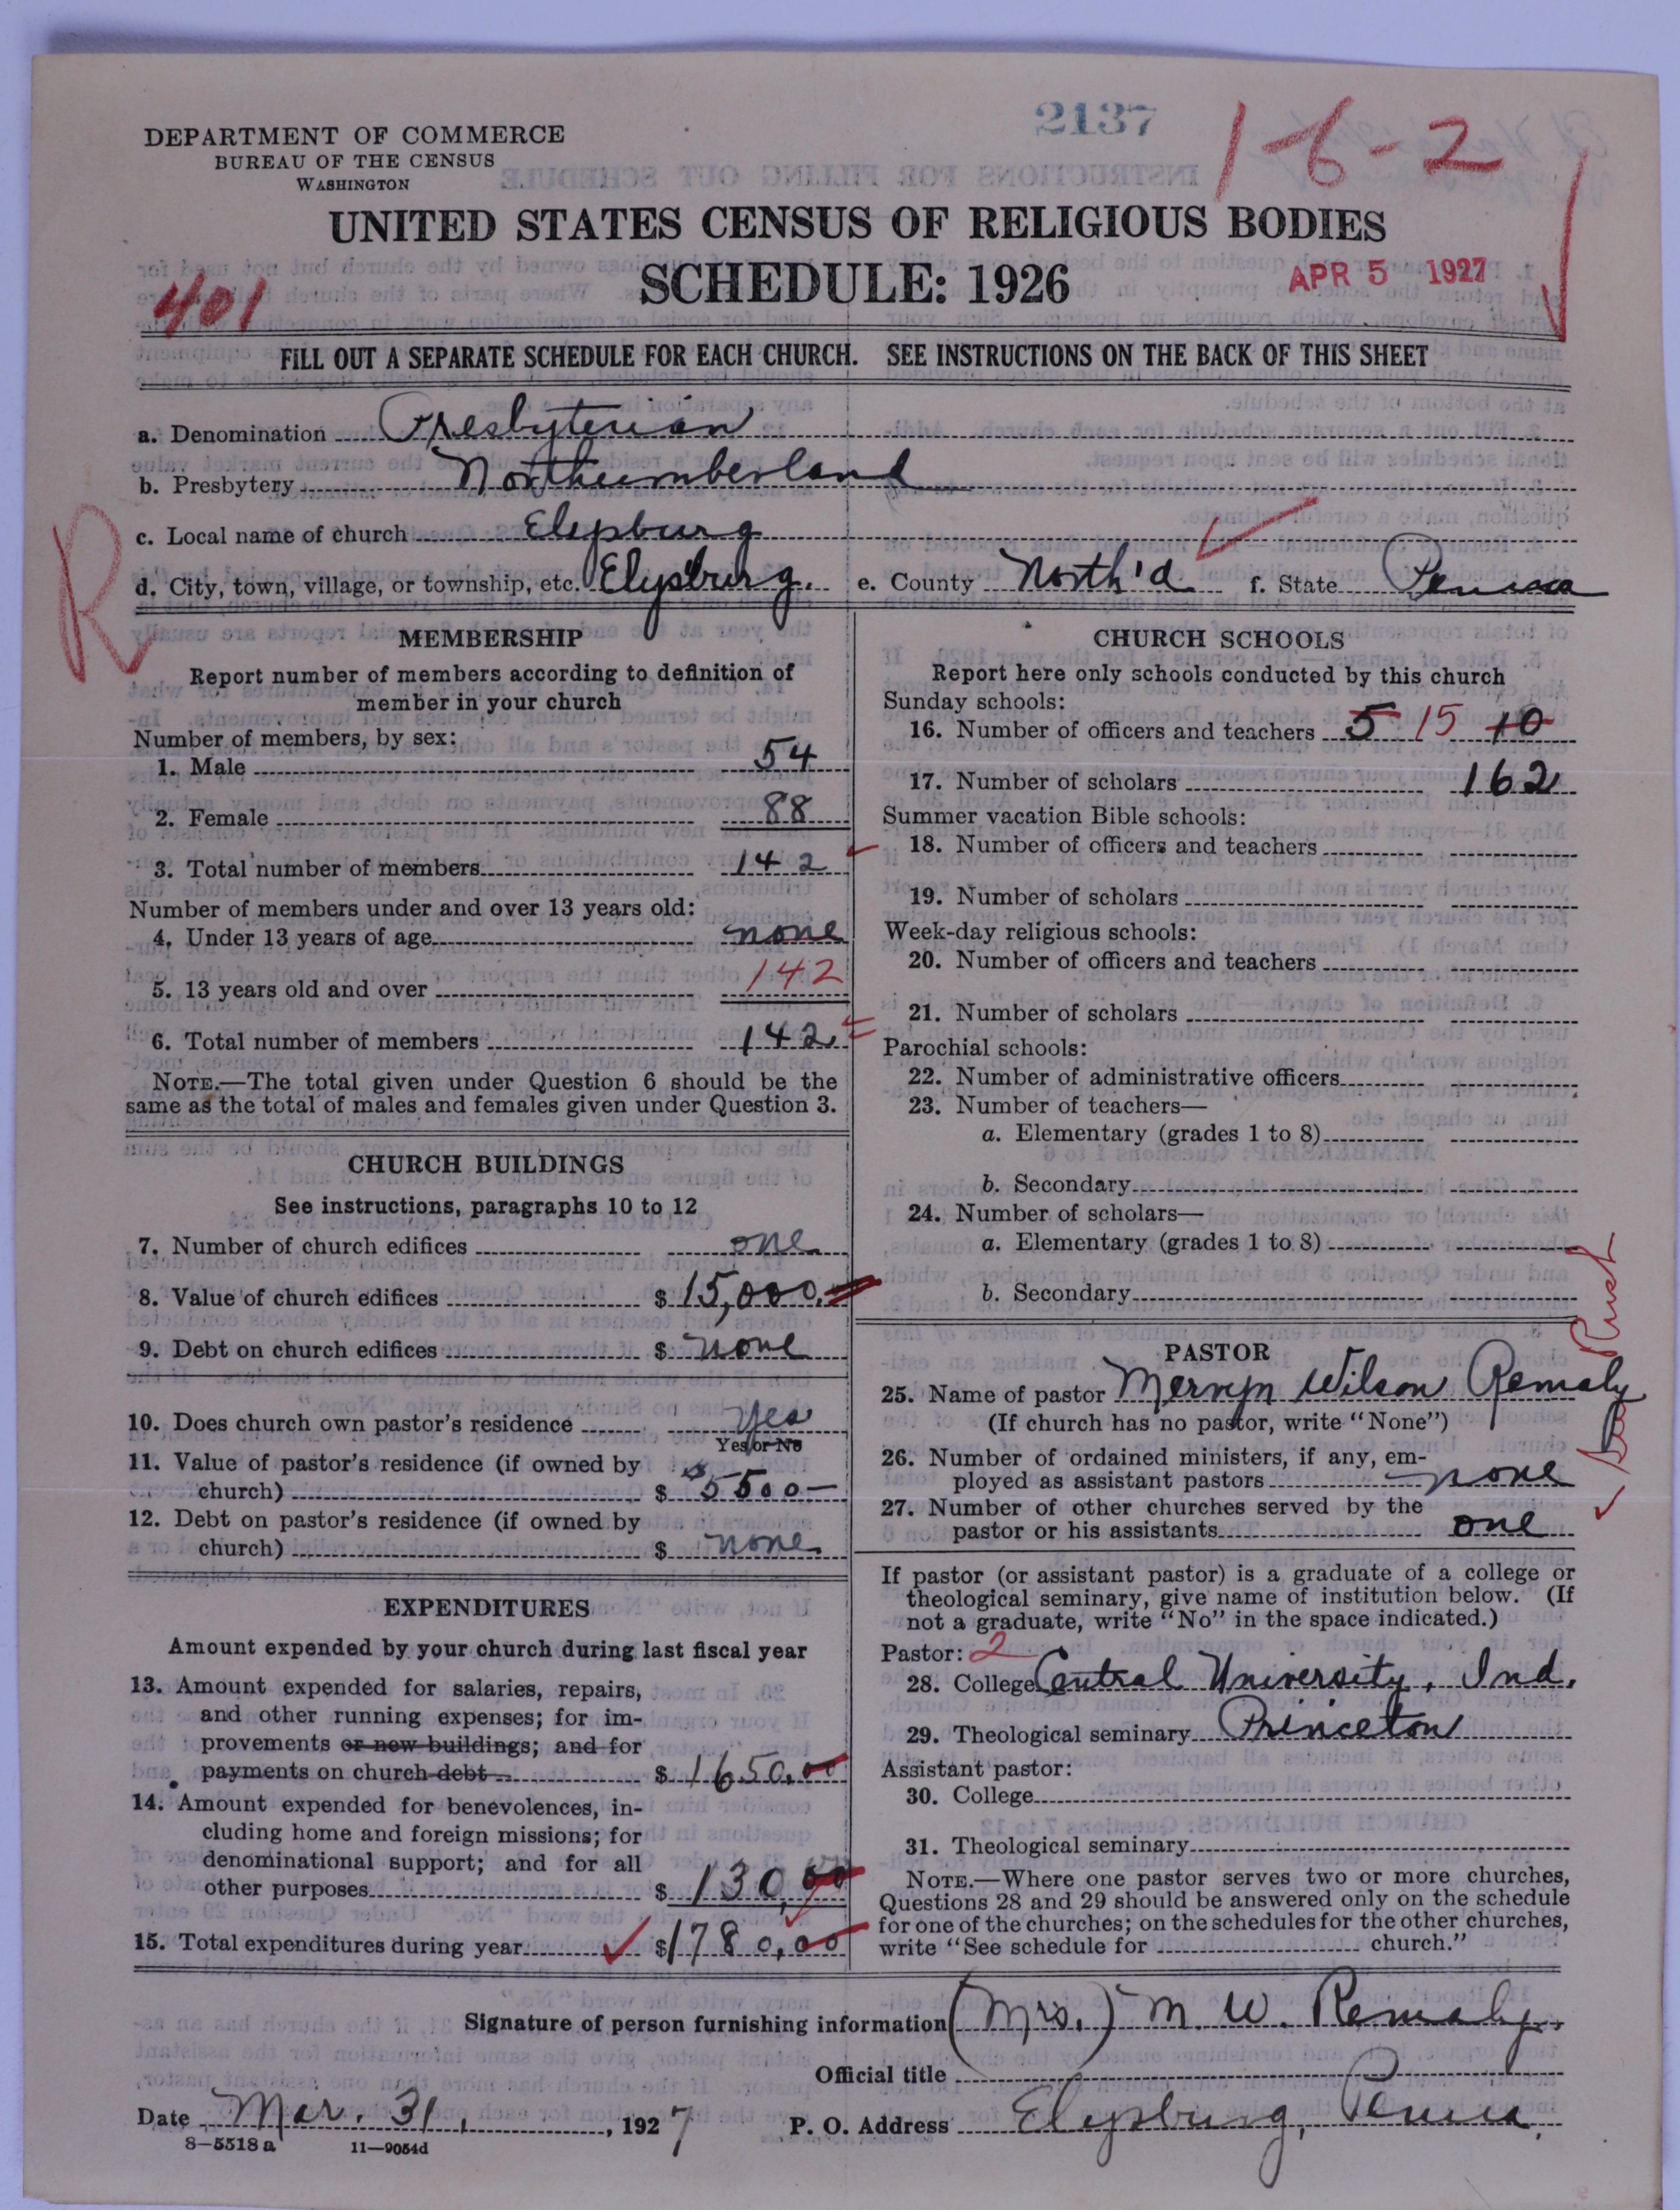 2137
1-6-2
DEPARTMENT OF COMMERCE
BUREAU OF THE CENSUS
WASHINGTON
UNITED STATES CENSUS OF RELIGIOUS BODIES
SCHEDULE: 1926
APR 5 1927
401
FILL OUT A SEPARATE SCHEDULE FOR EACH CHURCH. SEE INSTRUCTIONS ON THE BACK OF THIS SHEET
a. Denomination Presbyterian
b. Presbytery Northumberland
c. Local name of church Elysburg
d. City, town, village, or township, etc. Elysburg. e. County North'd f. State Penna
R
MEMBERSHIP
Report number of members according to definition of
member in your church
Number of members, by sex:
1. Male 54
2. Female 88
3. Total number of members 142
Number of members under and over 13 years old:
4. Under 13 years of age none
5. 13 years old and over 142
6. Total number of members 142
NOTE.—The total given under Question 6 should be the
same as the total of males and females given under Question 3.
CHURCH BUILDINGS
See instructions, paragraphs 10 to 12
7. Number of church edifices one
8. Value of church edifices $ 15,000.
9. Debt on church edifices $ none
10. Does church own pastor's residence yes
Yes or No
11. Value of pastor's residence (if owned by
church) $ $5500—
12. Debt on pastor's residence (if owned by
church) $ none
EXPENDITURES
Amount expended by your church during last fiscal year
13. Amount expended for salaries, repairs,
and other running expenses; for im-
provements or new buildings; and for
payments on church debt $ 1650.00
14. Amount expended for benevolences, in-
cluding home and foreign missions; for
denominational support; and for all
other purposes $ 130,00
15. Total expenditures during year $ 1780,00
CHURCH SCHOOLS
Report here only schools conducted by this church
Sunday schools:
16. Number of officers and teachers 5 15 10
17. Number of scholars 162
Summer vacation Bible schools:
18. Number of officers and teachers
19. Number of scholars
Week-day religious schools:
20. Number of officers and teachers
21. Number of scholars
Parochial schools:
22. Number of administrative officers
23. Number of teachers—
a. Elementary (grades 1 to 8)
b. Secondary
24. Number of scholars—
a. Elementary (grades 1 to 8)
b. Secondary
PASTOR
25. Name of pastor Mervyn Wilson Remaly
(If church has no pastor, write "None")
26. Number of ordained ministers, if any, em-
ployed as assistant pastors none
27. Number of other churches served by the
pastor or his assistants one
If pastor (or assistant pastor) is a graduate of a college or
theological seminary, give name of institution below. (If
not a graduate, write "No" in the space indicated.)
Pastor: 2
28. College Central University, Ind.
29. Theological seminary Princeton
Assistant pastor:
30. College
31. Theological seminary
NOTE.—Where one pastor serves two or more churches,
Questions 28 and 29 should be answered only on the schedule
for one of the churches; on the schedules for the other churches,
write "See schedule for church."
Signature of person furnishing information (Mrs.) M. W. Remaly.
Official title
Date Mar. 31, 1927 P. O. Address Elysburg, Penna.
8-5518a 11-9054d